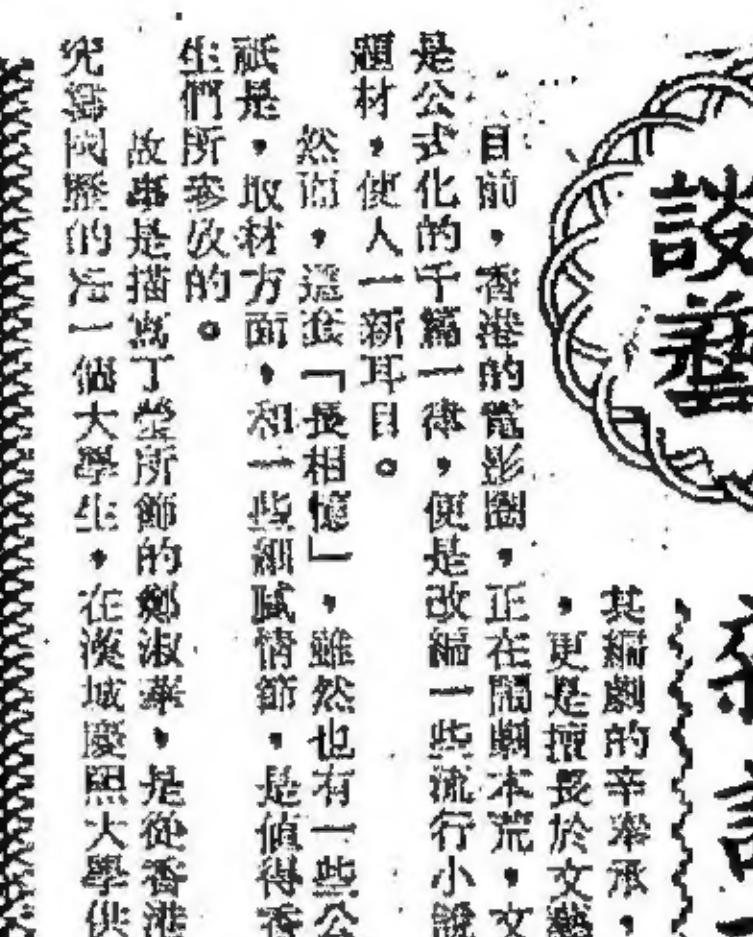 談藝
其編劇的辛奉承，
，更是擅長於文藝
目前，香港的電影圈，正在鬧劇本荒，文
是公式化的千篇一律，便是改編一些流行小說
題材，使人一新耳目。
然而，這套「長相憶」，雖然也有一些公
祇是，取材方面，和一些細膩情節，是值得香
生們所參攷的。
故事是描寫丁瑩所飾的鄭淑華，是從香港
究當國歷的一個大學生，在漢城慶熙大學供